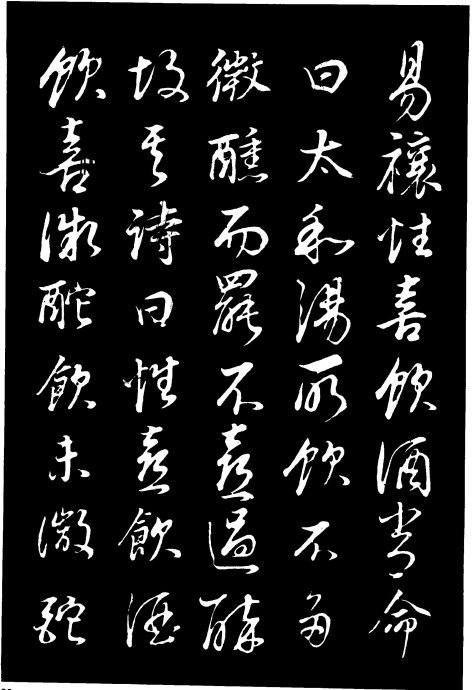 易禳性喜飲酒嘗命
曰太和湯所飲不多
微醺而罷不喜過醉
故其詩曰性喜飲酒
飲喜微酡飲未微酡